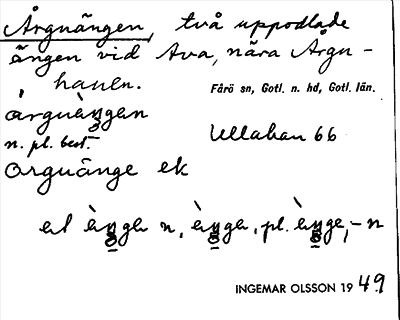 Årgnängen, två uppodlade
ängen vid Ava, nära Argn-
hauen.
Fårö sn, Gotl. n. hd, Gotl. län.
argnàngen
n. pl. best.
Ullahau 66
argnänge ek
et ènge n, ènge, pl. ènge, -n
INGEMAR OLSSON 1949